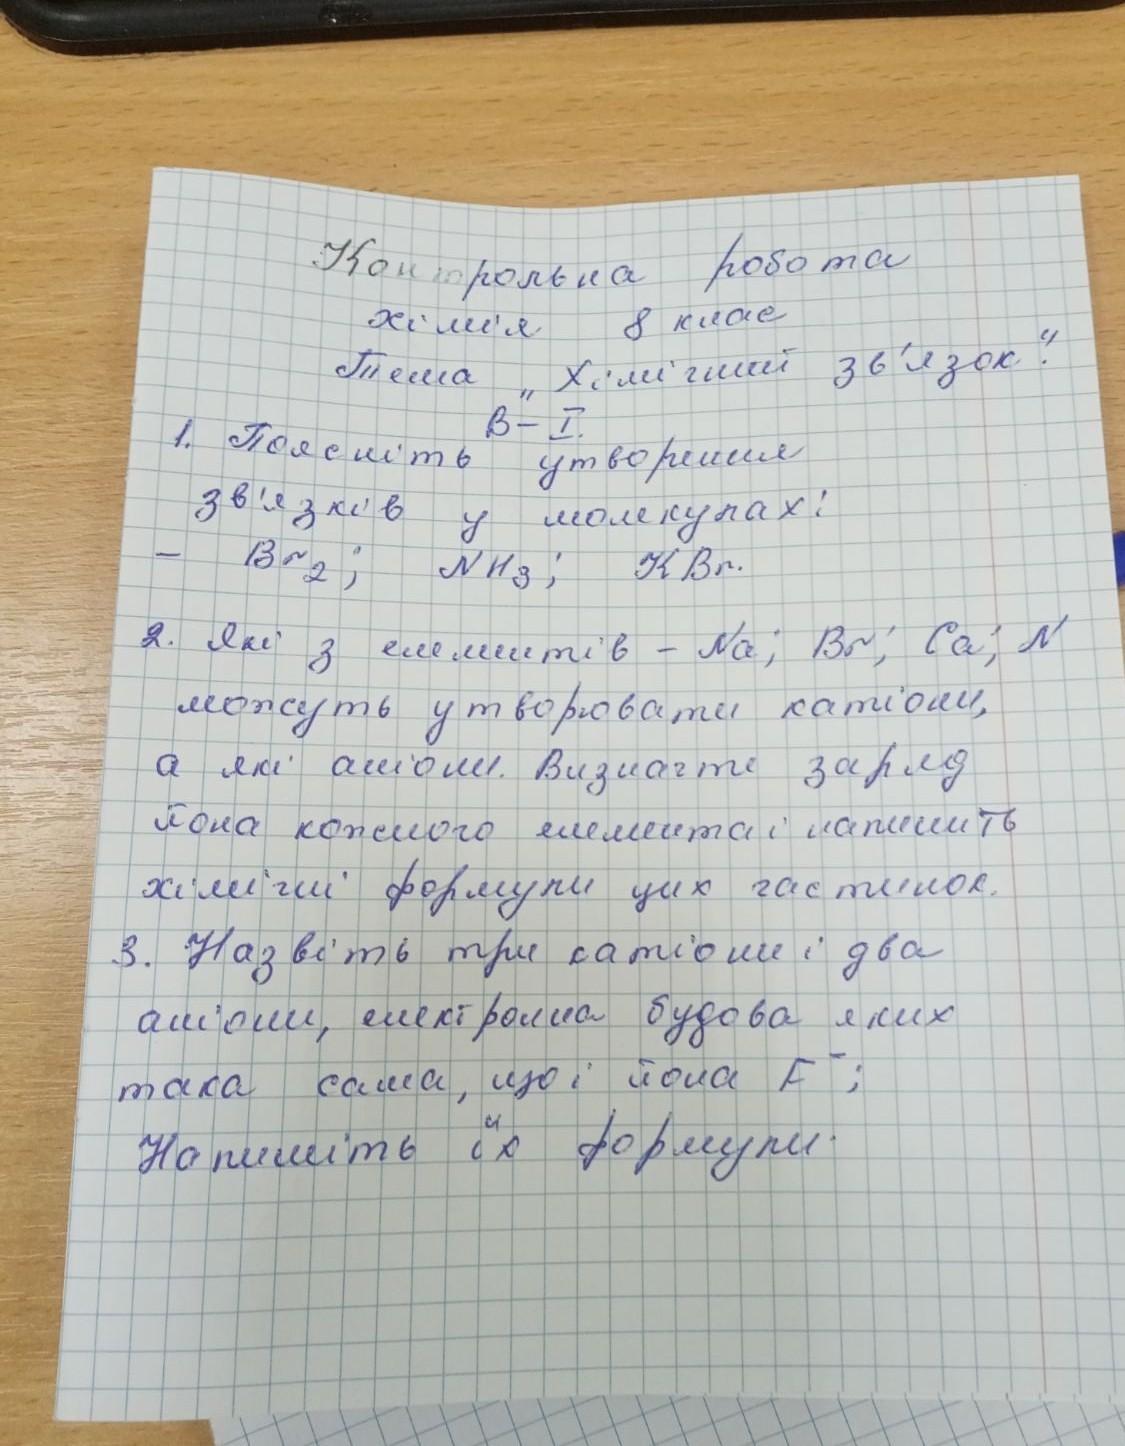 Контрольна робота
хімія 8 клас
Тема „Хімічний зв'язок".
В – I.
1. Поясніть утворення
зв'язків у молекулах:
– Br₂; NH₃; KBr.
2. Які з елементів – Na; Br; Ca; N
можуть утворювати катіони,
а які аніони. Визначте заряд
йона кожного елемента і напишіть
хімічні формули цих частинок.
3. Назвіть три катіони і два
аніони, електронна будова яких
така сама, що і йона F⁻;
Напишіть їх формули.